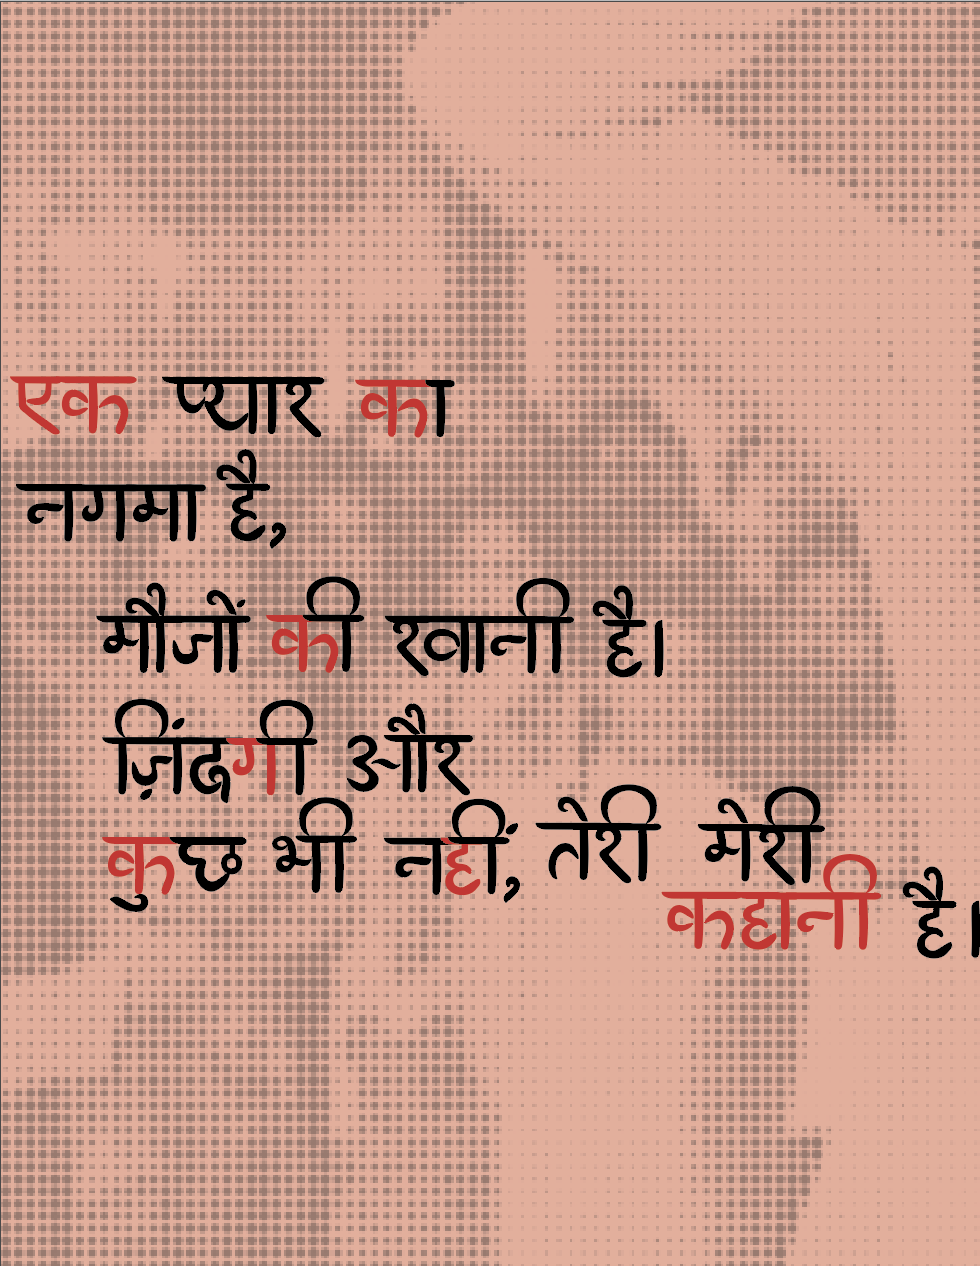 एक प्यार का
नगमा है,
मौजों की रवानी है।
ज़िंदगी और
कुछ भी नहीं, तेरी मेरी
कहानी है।